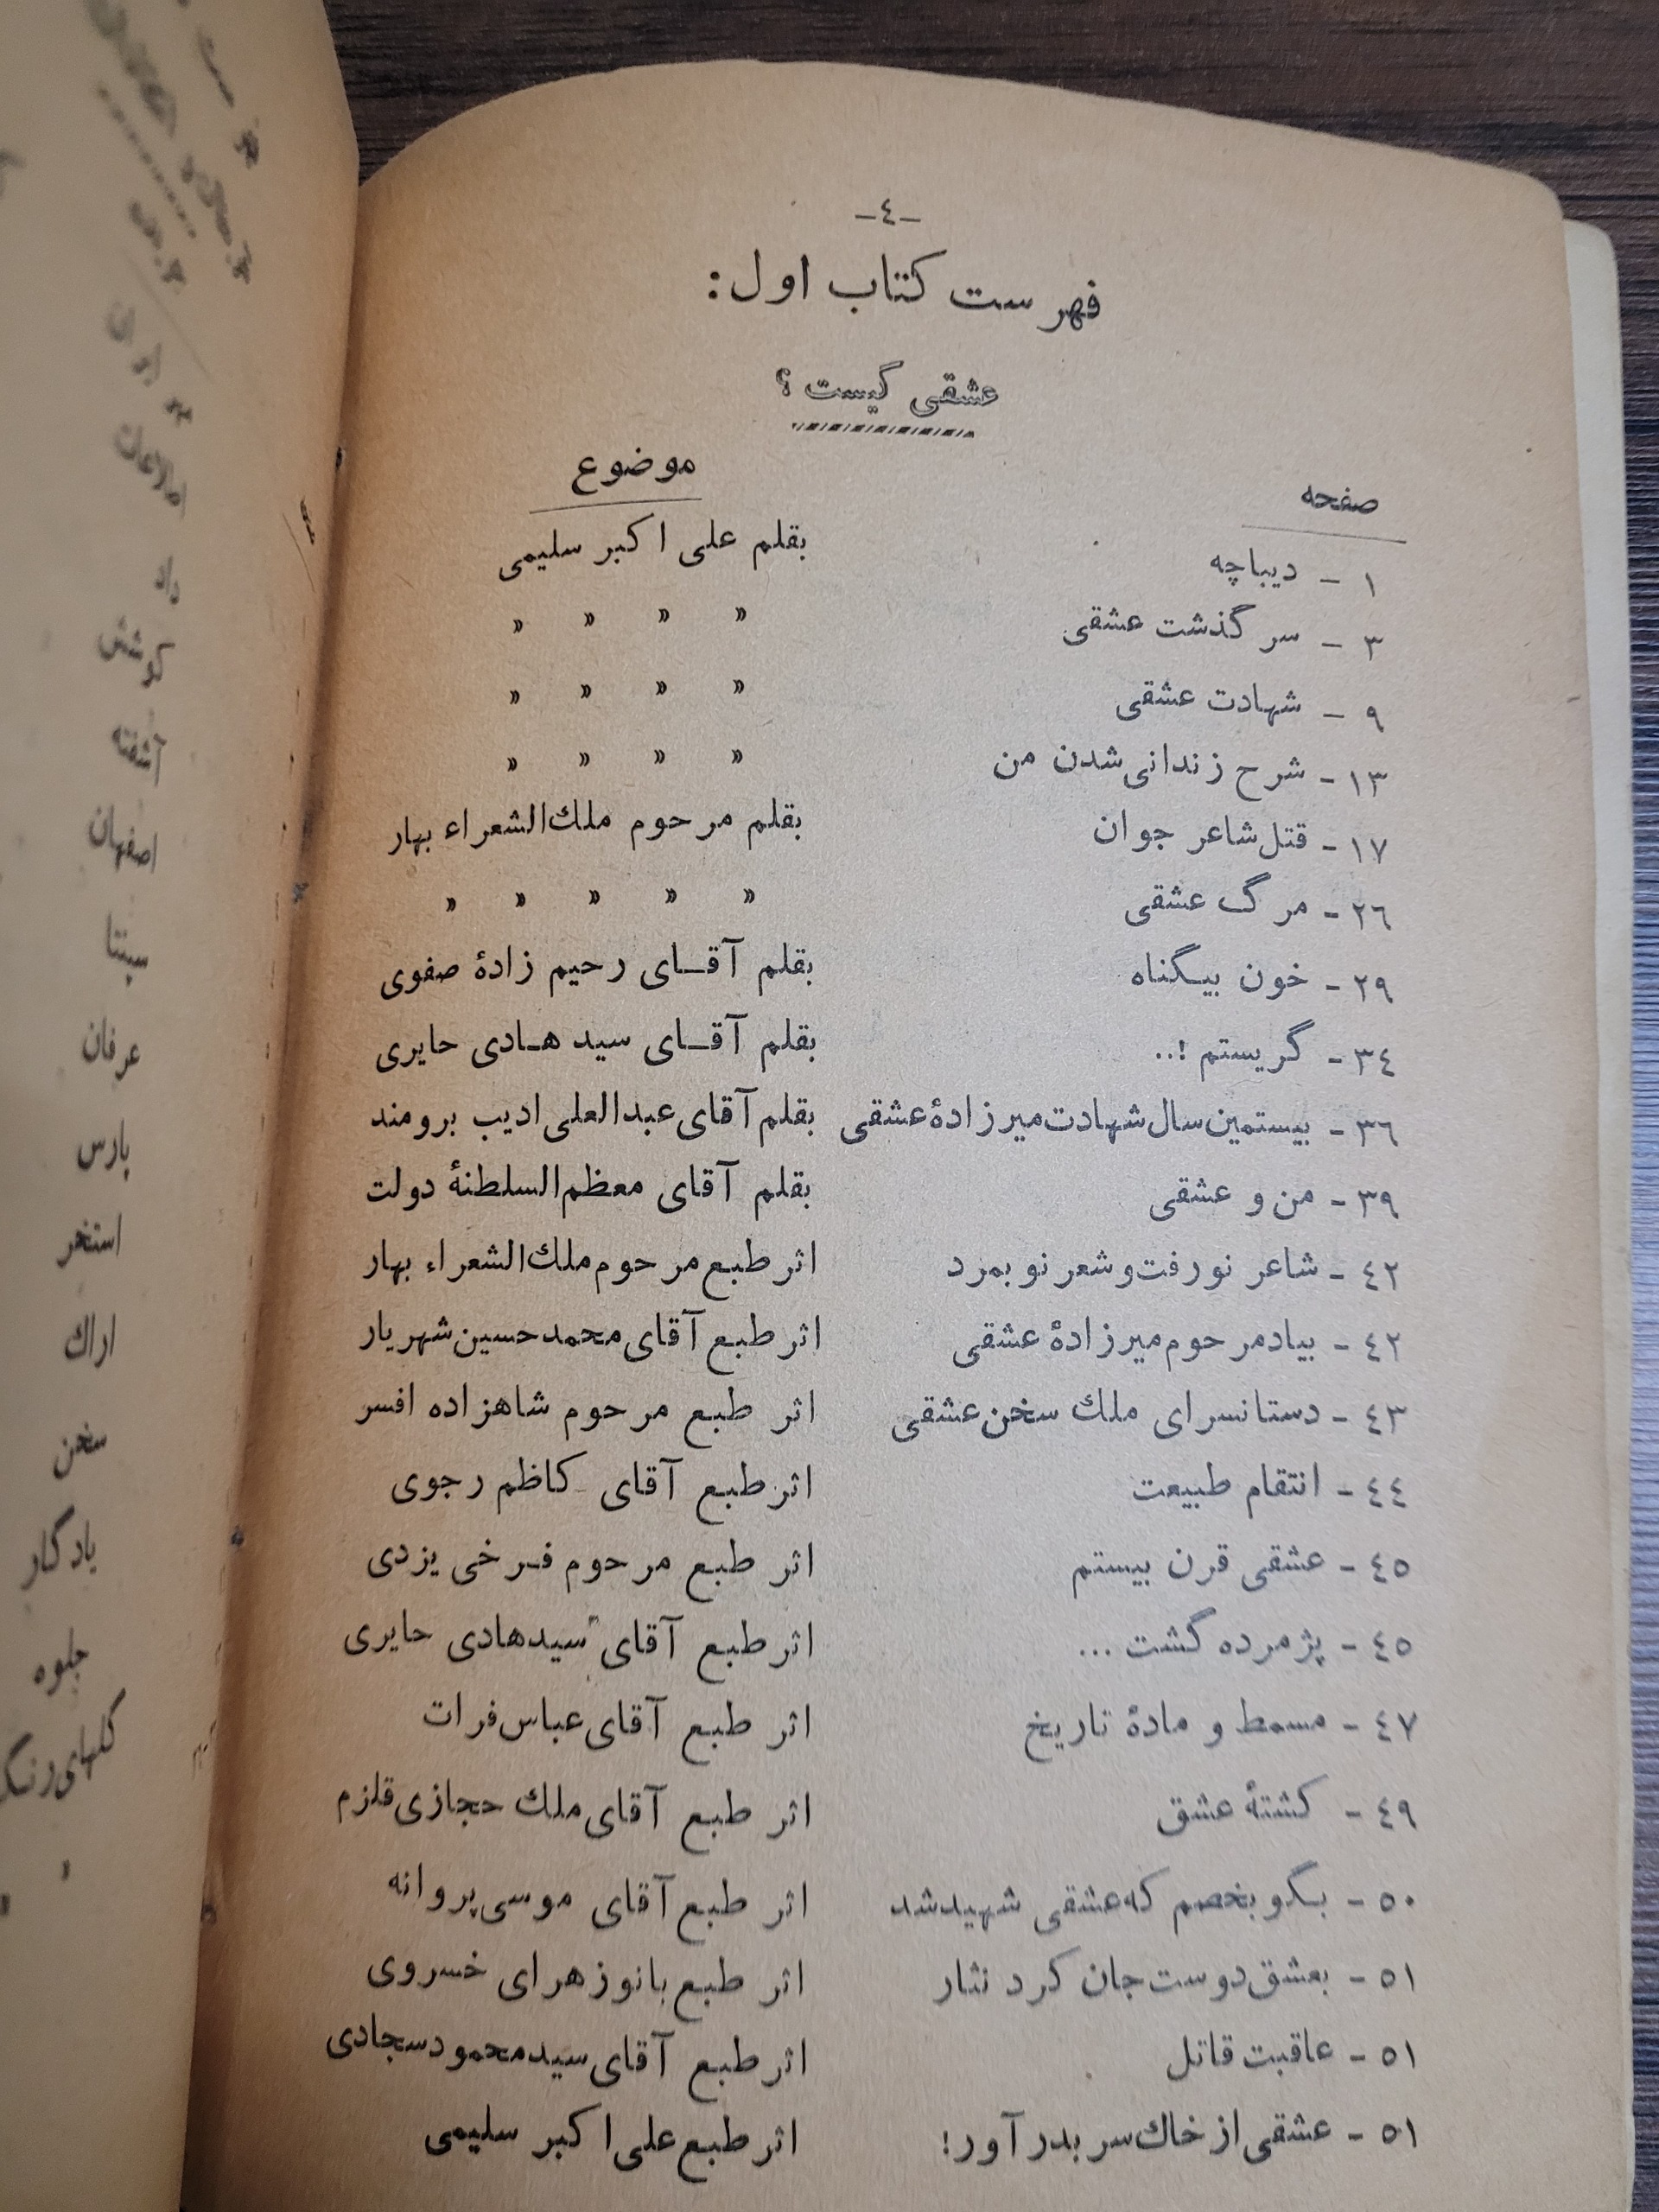 -٤-
فهرست کتاب اول:
عشقی کیست ؟
صفحه موضوع
۱ - دیباچه بقلم علی اکبر سلیمی
۳ - سر گذشت عشقی » » » »
۹ - شهادت عشقی » » » »
۱۳ - شرح زندانی شدن من » » » »
۱۷ - قتل شاعر جوان بقلم مرحوم ملك‌الشعراء بهار
۲٦ - مرگ عشقی » » » » »
۲۹ - خون بیگناه بقلم آقای رحیم زادهٔ صفوی
۳٤ - گریستم !.. بقلم آقای سید هادی حایری
۳٦ - بیستمین سال شهادت میرزادهٔ عشقی بقلم آقای عبدالعلی ادیب برومند
۳۹ - من و عشقی بقلم آقای معظم‌السلطنهٔ دولت
٤۲ - شاعر نو رفت و شعر نو بمرد اثر طبع مرحوم ملك‌الشعراء بهار
٤۲ - بیاد مرحوم میرزادهٔ عشقی اثر طبع آقای محمد حسین شهریار
٤۳ - دستانسرای ملك سخن عشقی اثر طبع مرحوم شاهزاده افسر
٤٤ - انتقام طبیعت اثر طبع آقای کاظم رجوی
٤٥ - عشقی قرن بیستم اثر طبع مرحوم فرخی یزدی
٤٥ - پژمرده گشت ... اثر طبع آقای سید هادی حایری
٤۷ - مسمط و مادهٔ تاریخ اثر طبع آقای عباس فرات
٤۹ - کشتهٔ عشق اثر طبع آقای ملك حجازی قلزم
٥۰ - بگو بخصم که عشقی شهید شد اثر طبع آقای موسی پروانه
٥۱ - بعشق دوست جان کرد نثار اثر طبع بانو زهرای خسروی
٥۱ - عاقبت قاتل اثر طبع آقای سید محمود سجادی
٥۱ - عشقی از خاك سر بدر آور! اثر طبع علی اکبر سلیمی
داد
کوشش
آشفته
اصفهان
سپنتا
عرفان
پارس
استخر
اراك
سخن
یادگار
جلوه